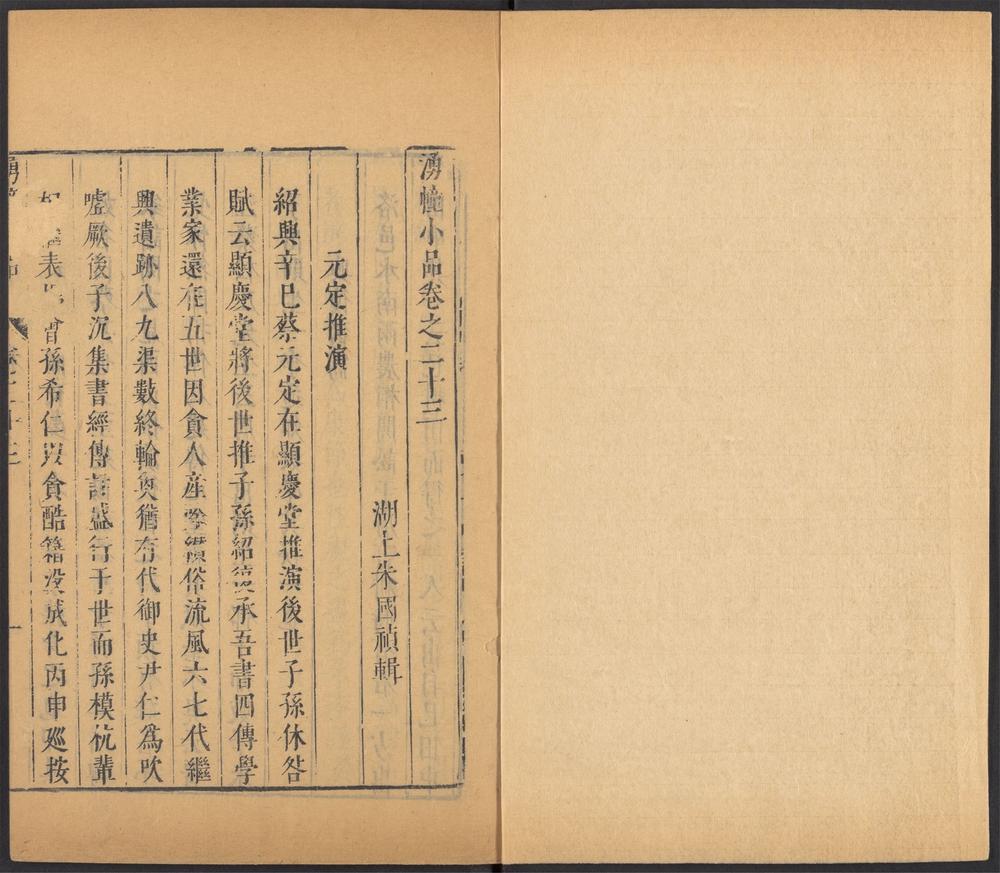 湧幢小品卷之二十三
湖上朱國禎輯
元定推演
紹興辛巳蔡元定在顯慶堂推演後世子孫休咎
賦云顯慶堂將後世推子孫紹襲承吾書四傳學
業家還在五世因貪人產業俗流風六七代繼
興遺跡八九渠數終輪奐猶存代御史尹仁爲吹
噓厥後子沉集書經傳註盛行于世而孫模杭輩
表 曾孫希仁以貪酷籍沒成化丙申廵按
卷之二十三
一